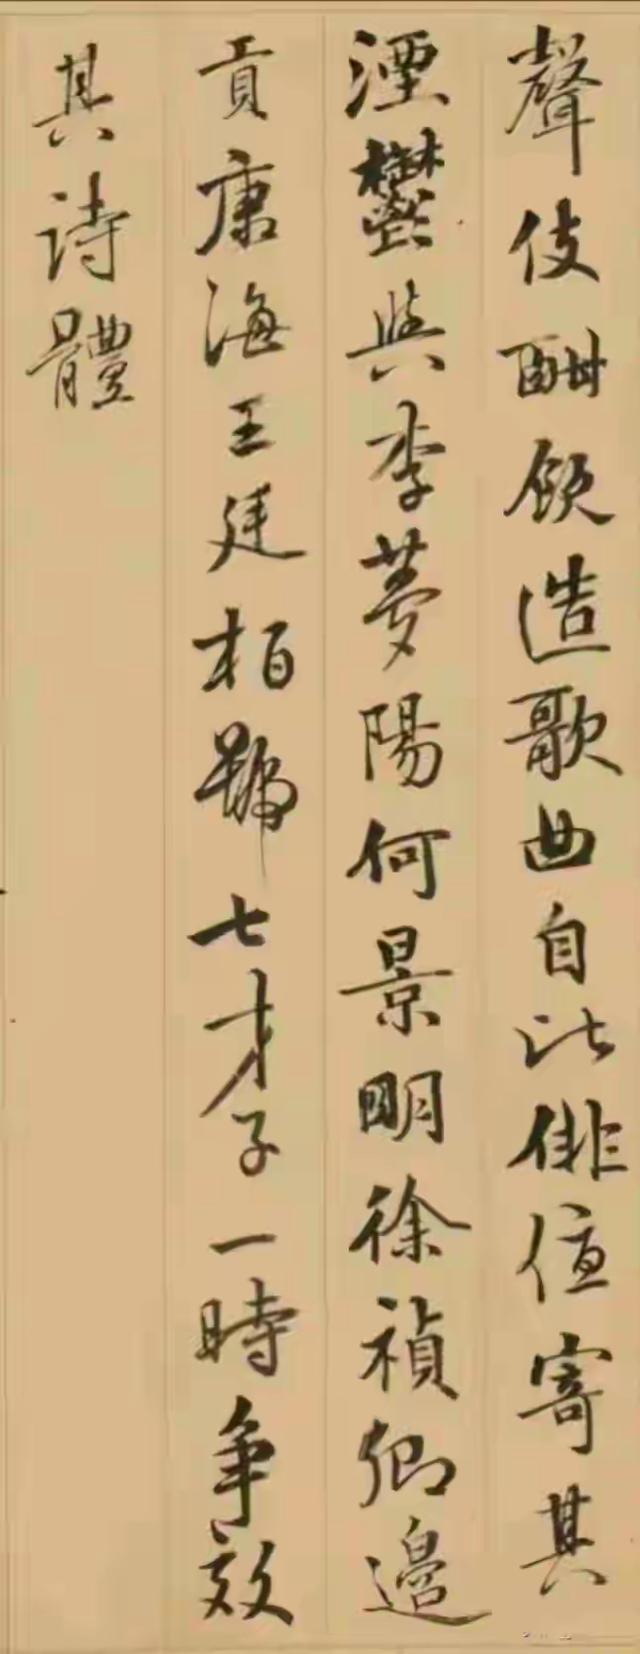 聲伎酣飲造歌曲自比俳優寄其
湮鬱與李夢陽何景明徐禎卿邊
貢康海王廷相號七才子一時爭效
其詩體